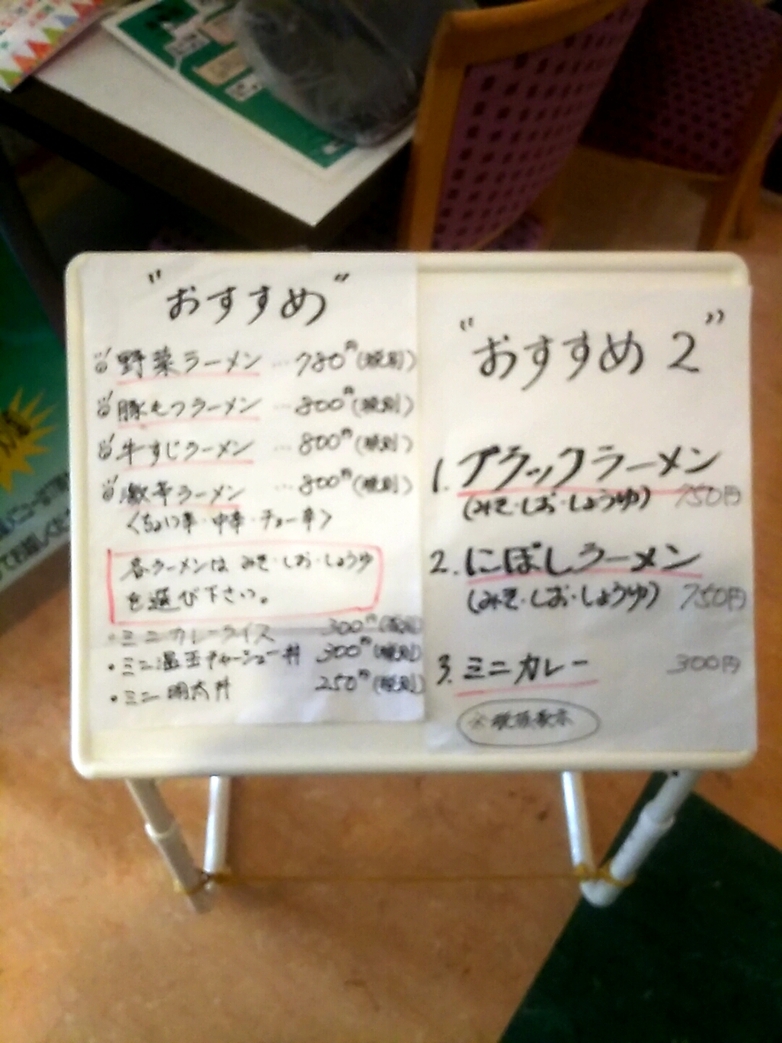 "おすすめ"
野菜ラーメン … 780円(税別)
豚もつラーメン … 800円(税別)
牛すじラーメン … 800円(税別)
激辛ラーメン … 800円(税別)
<ちょい辛・中辛・チョー辛>
各ラーメンは みそ・しお・しょうゆ
を選び下さい。
・ミニカレーライス 300円(税別)
・ミニ温玉チャーシュー丼 300円(税別)
・ミニ明太丼 250円(税別)
"おすすめ2"
1. ブラックラーメン
(みそ・しお・しょうゆ) 750円
2. にぼしラーメン
(みそ・しお・しょうゆ) 750円
3. ミニカレー 300円